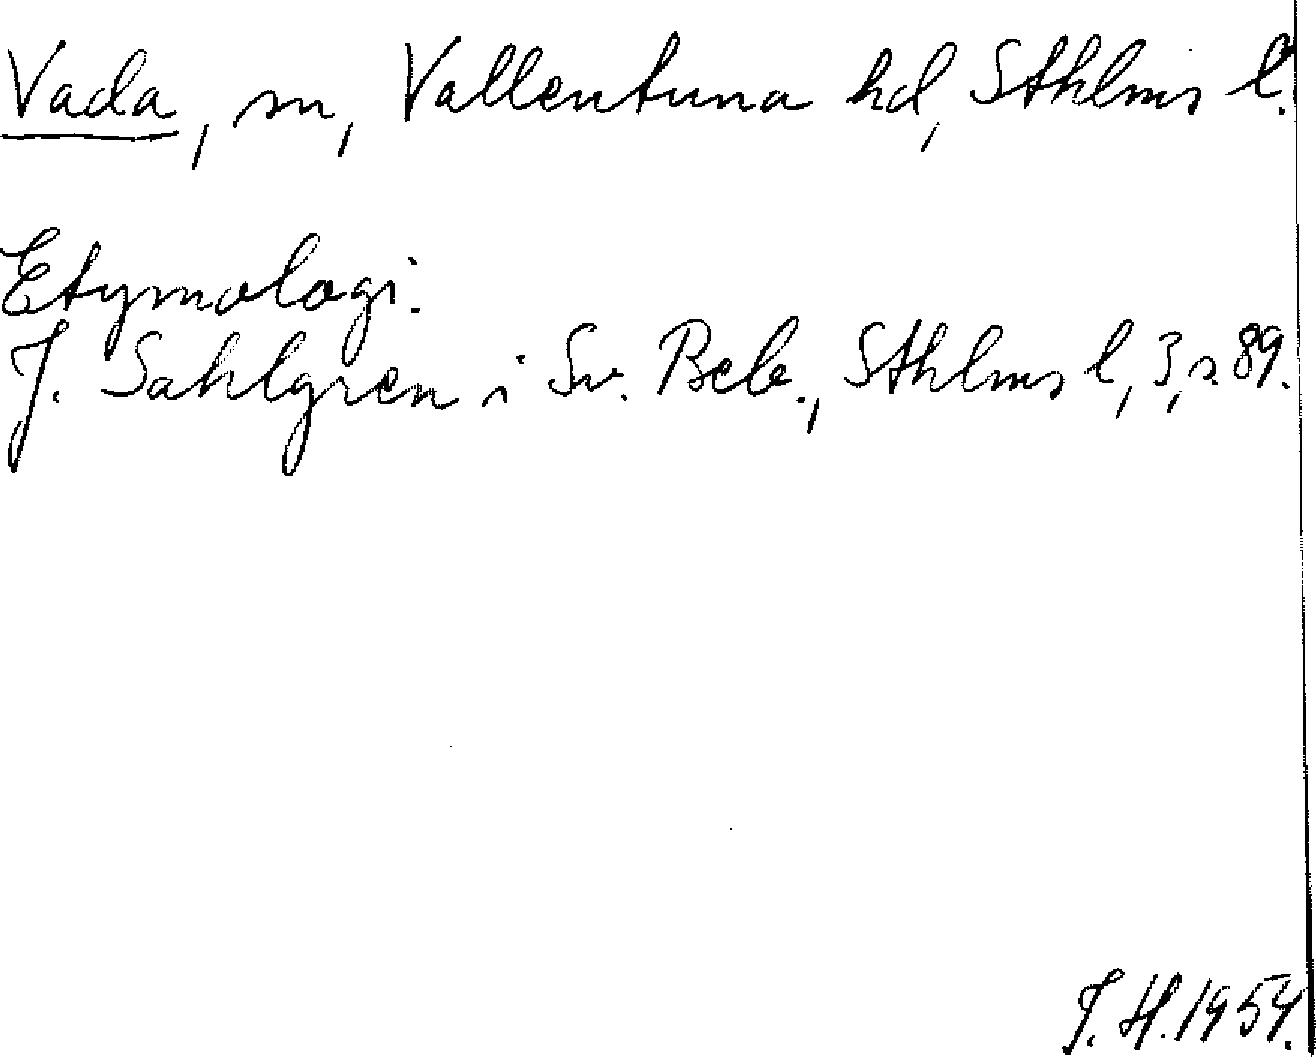 Vada, sn, Vallentuna hd, Sthlms l.
Etymologi.
J. Sahlgren i Sv. Beb., Sthlms l, 3, s. 89.
J. H. 1954.